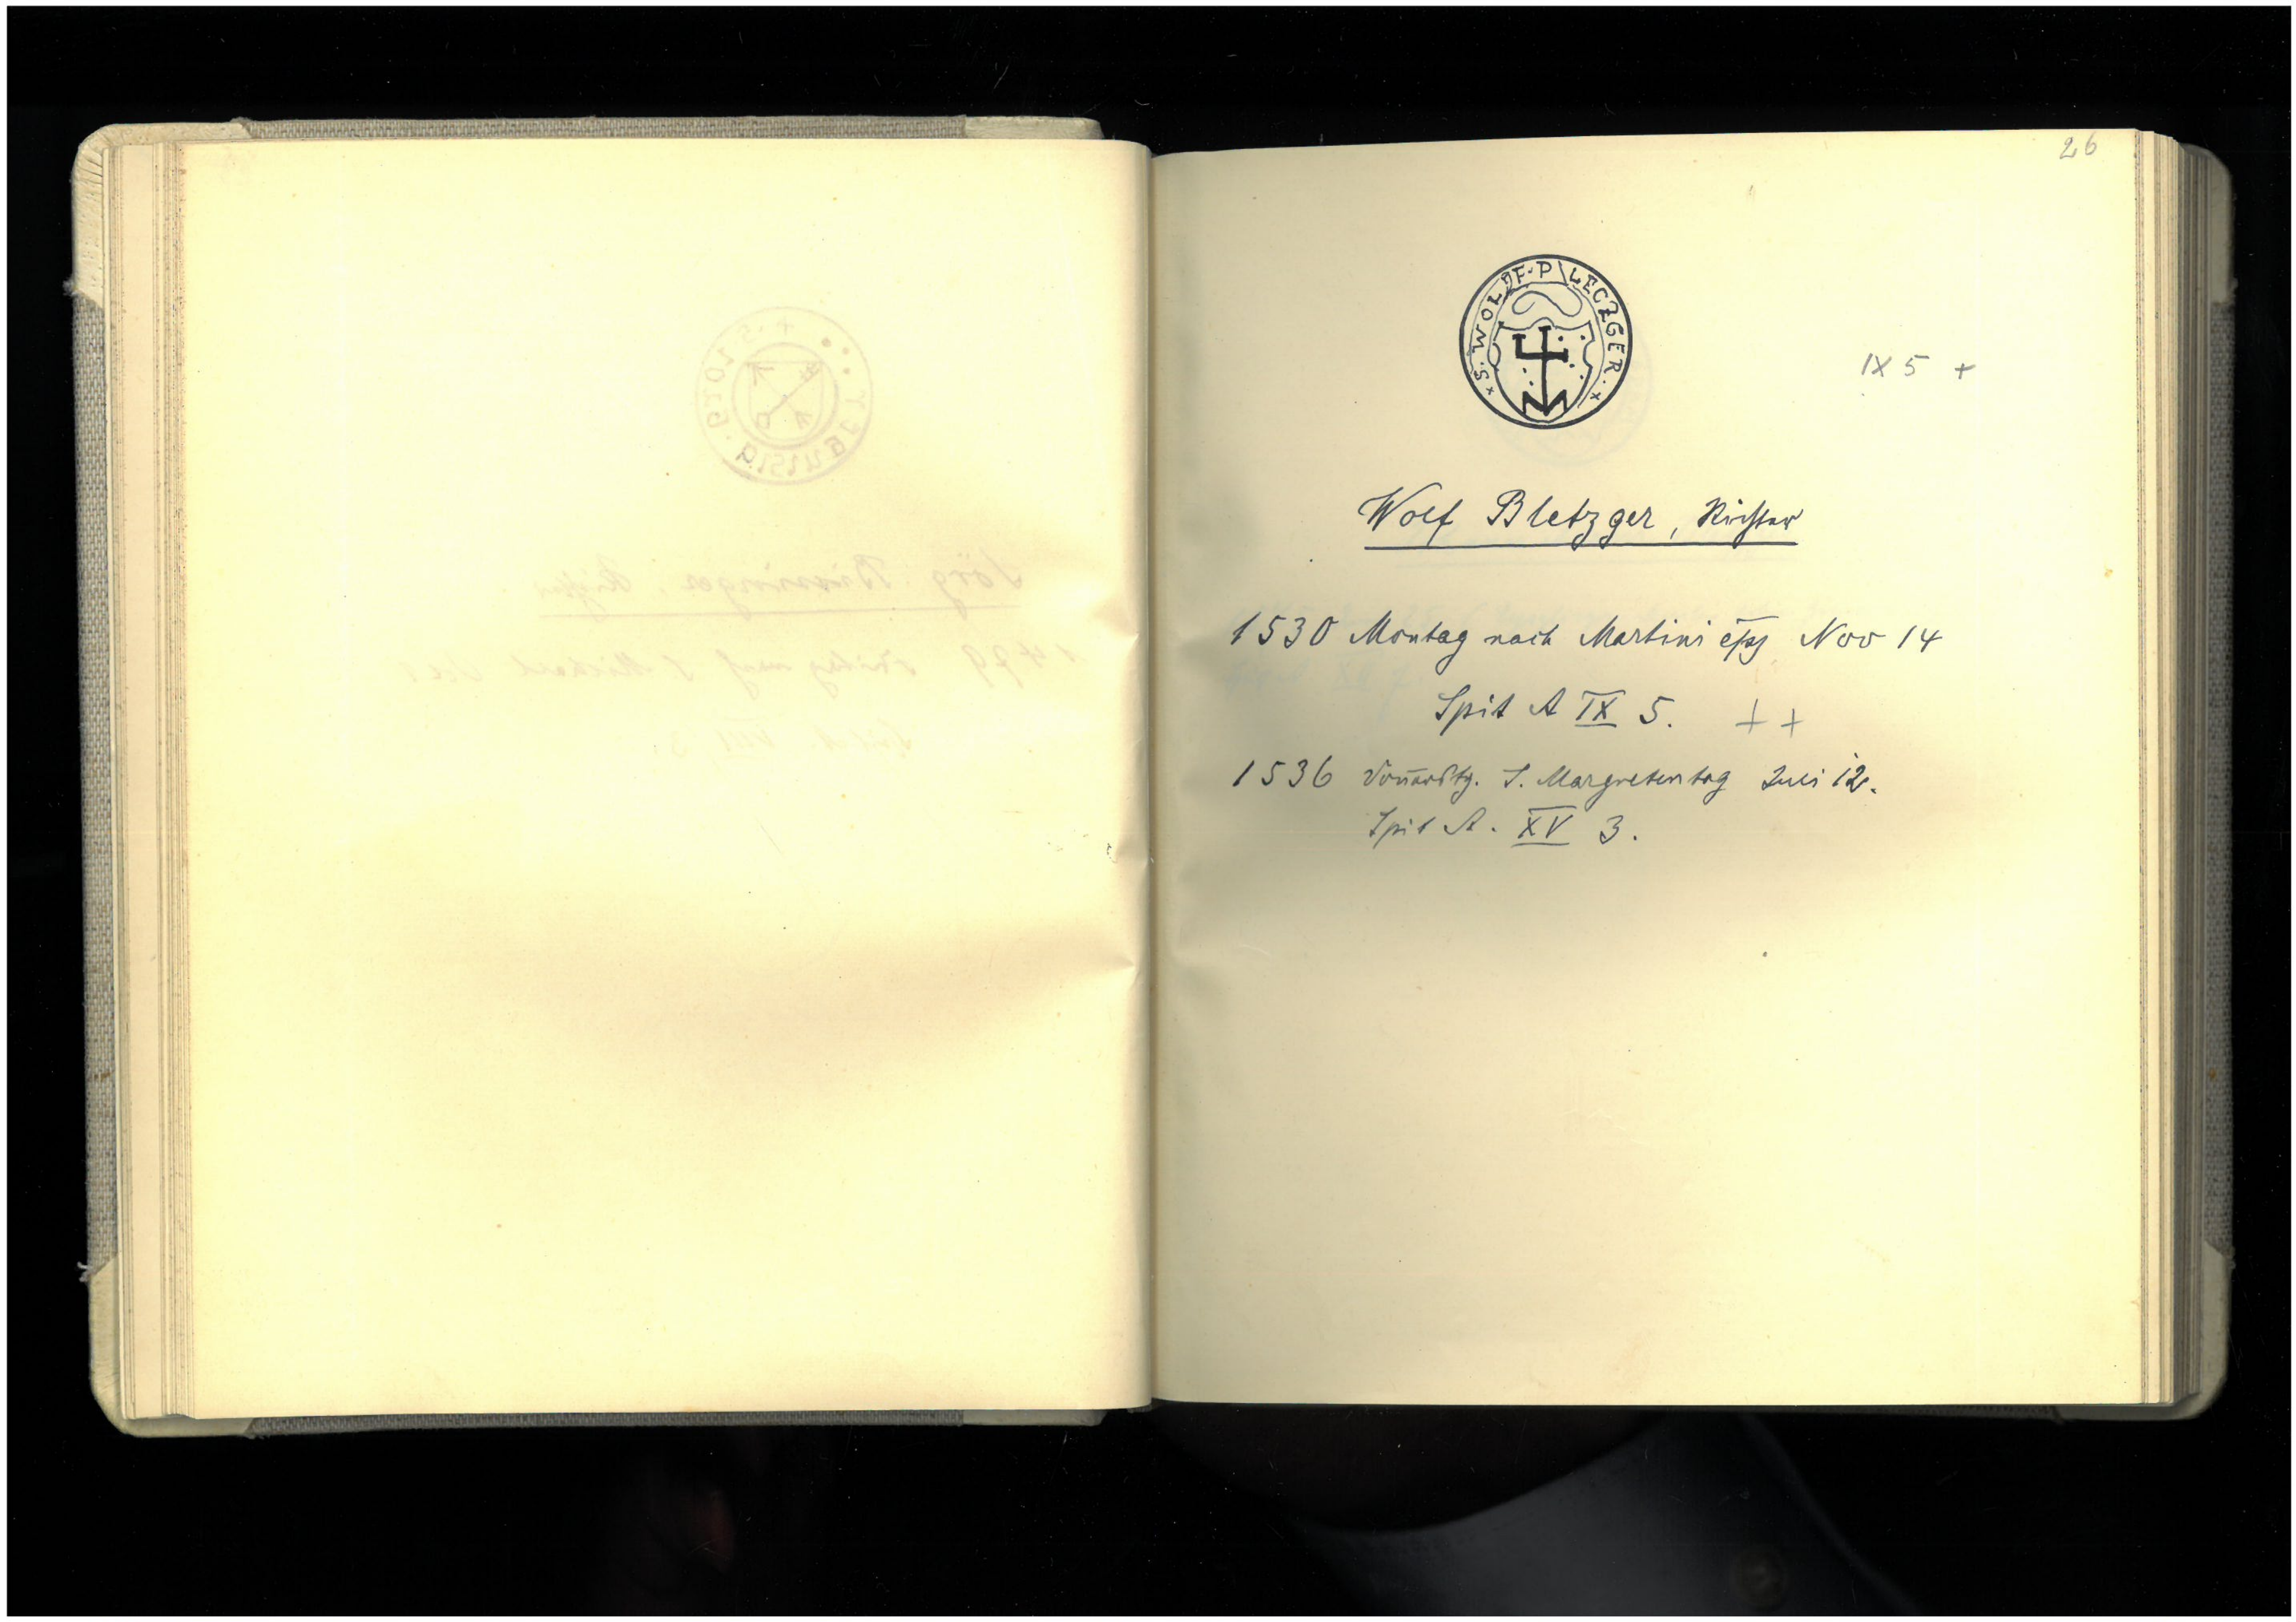 26
× S. WOLFF · PLECZGER · ×
IX 5 +
Wolf Bletzger, Richter
1530 Montag nach Martini epj Nov 14
Spit A IX 5. + +
1536 Don̄erstg. S. Margretentag Juli 12.
Spit A. XV 3.